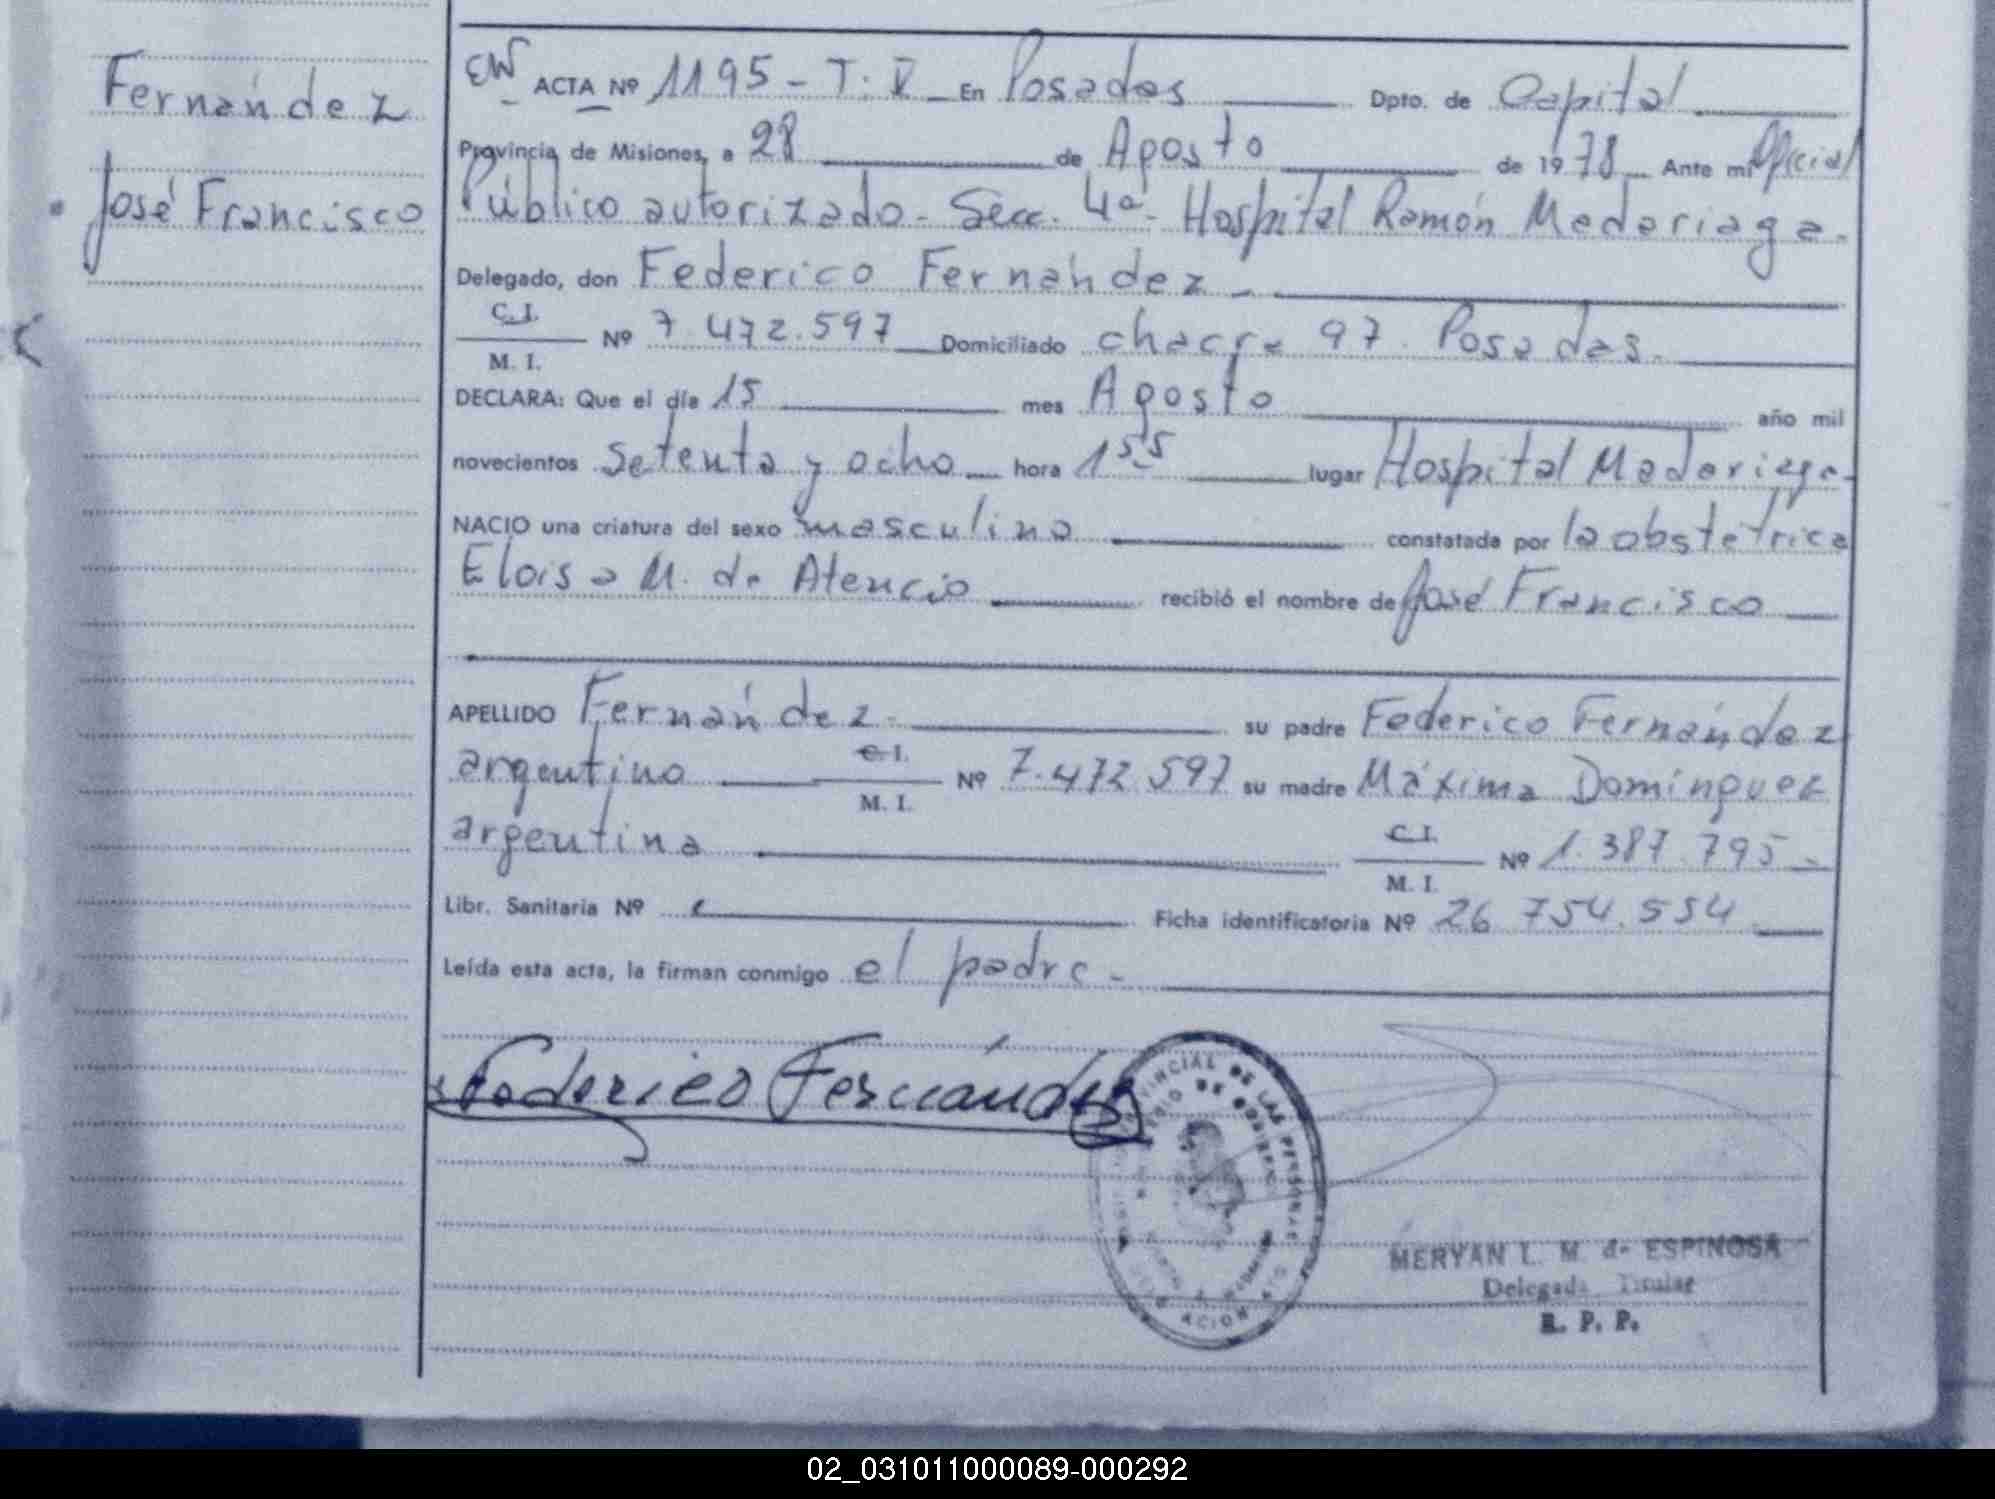 Fernández
José Francisco
ACTA Nº 1195 - T: V En Posadas Dpto. de Capital
Provincia de Misiones, a 28 de Agosto de 1978 Ante mi Oficial
Público autorizado - Secc. 4ª - Hospital Ramón Madariaga.
Delegado, don Federico Fernández
C.I.
M. I. Nº 7.472.597 Domiciliado chacra 97. Posadas.
DECLARA: Que el día 15 mes Agosto año mil
novecientos setenta y ocho hora 1 55 lugar Hospital Madariaga
NACIO una criatura del sexo masculino constatada por la obstétrica
Eloisa M. de Atencio recibió el nombre de José Francisco
APELLIDO Fernández su padre Federico Fernández
argentino C.I.
M. I. Nº 7.472.597 su madre Máxima Domínguez
argentina C.I.
M. I. Nº 1.387.795
Libr. Sanitaria Nº Ficha identificatoria Nº 26.754.554
Leída esta acta, la firman conmigo el padre -
Federico Fernández
VINCIAL DE LAS PERSONAS
DE GOBIERNO
MERYAN L. M. de ESPINOSA
Delegada Titular
R. P. P.
02_031011000089-000292